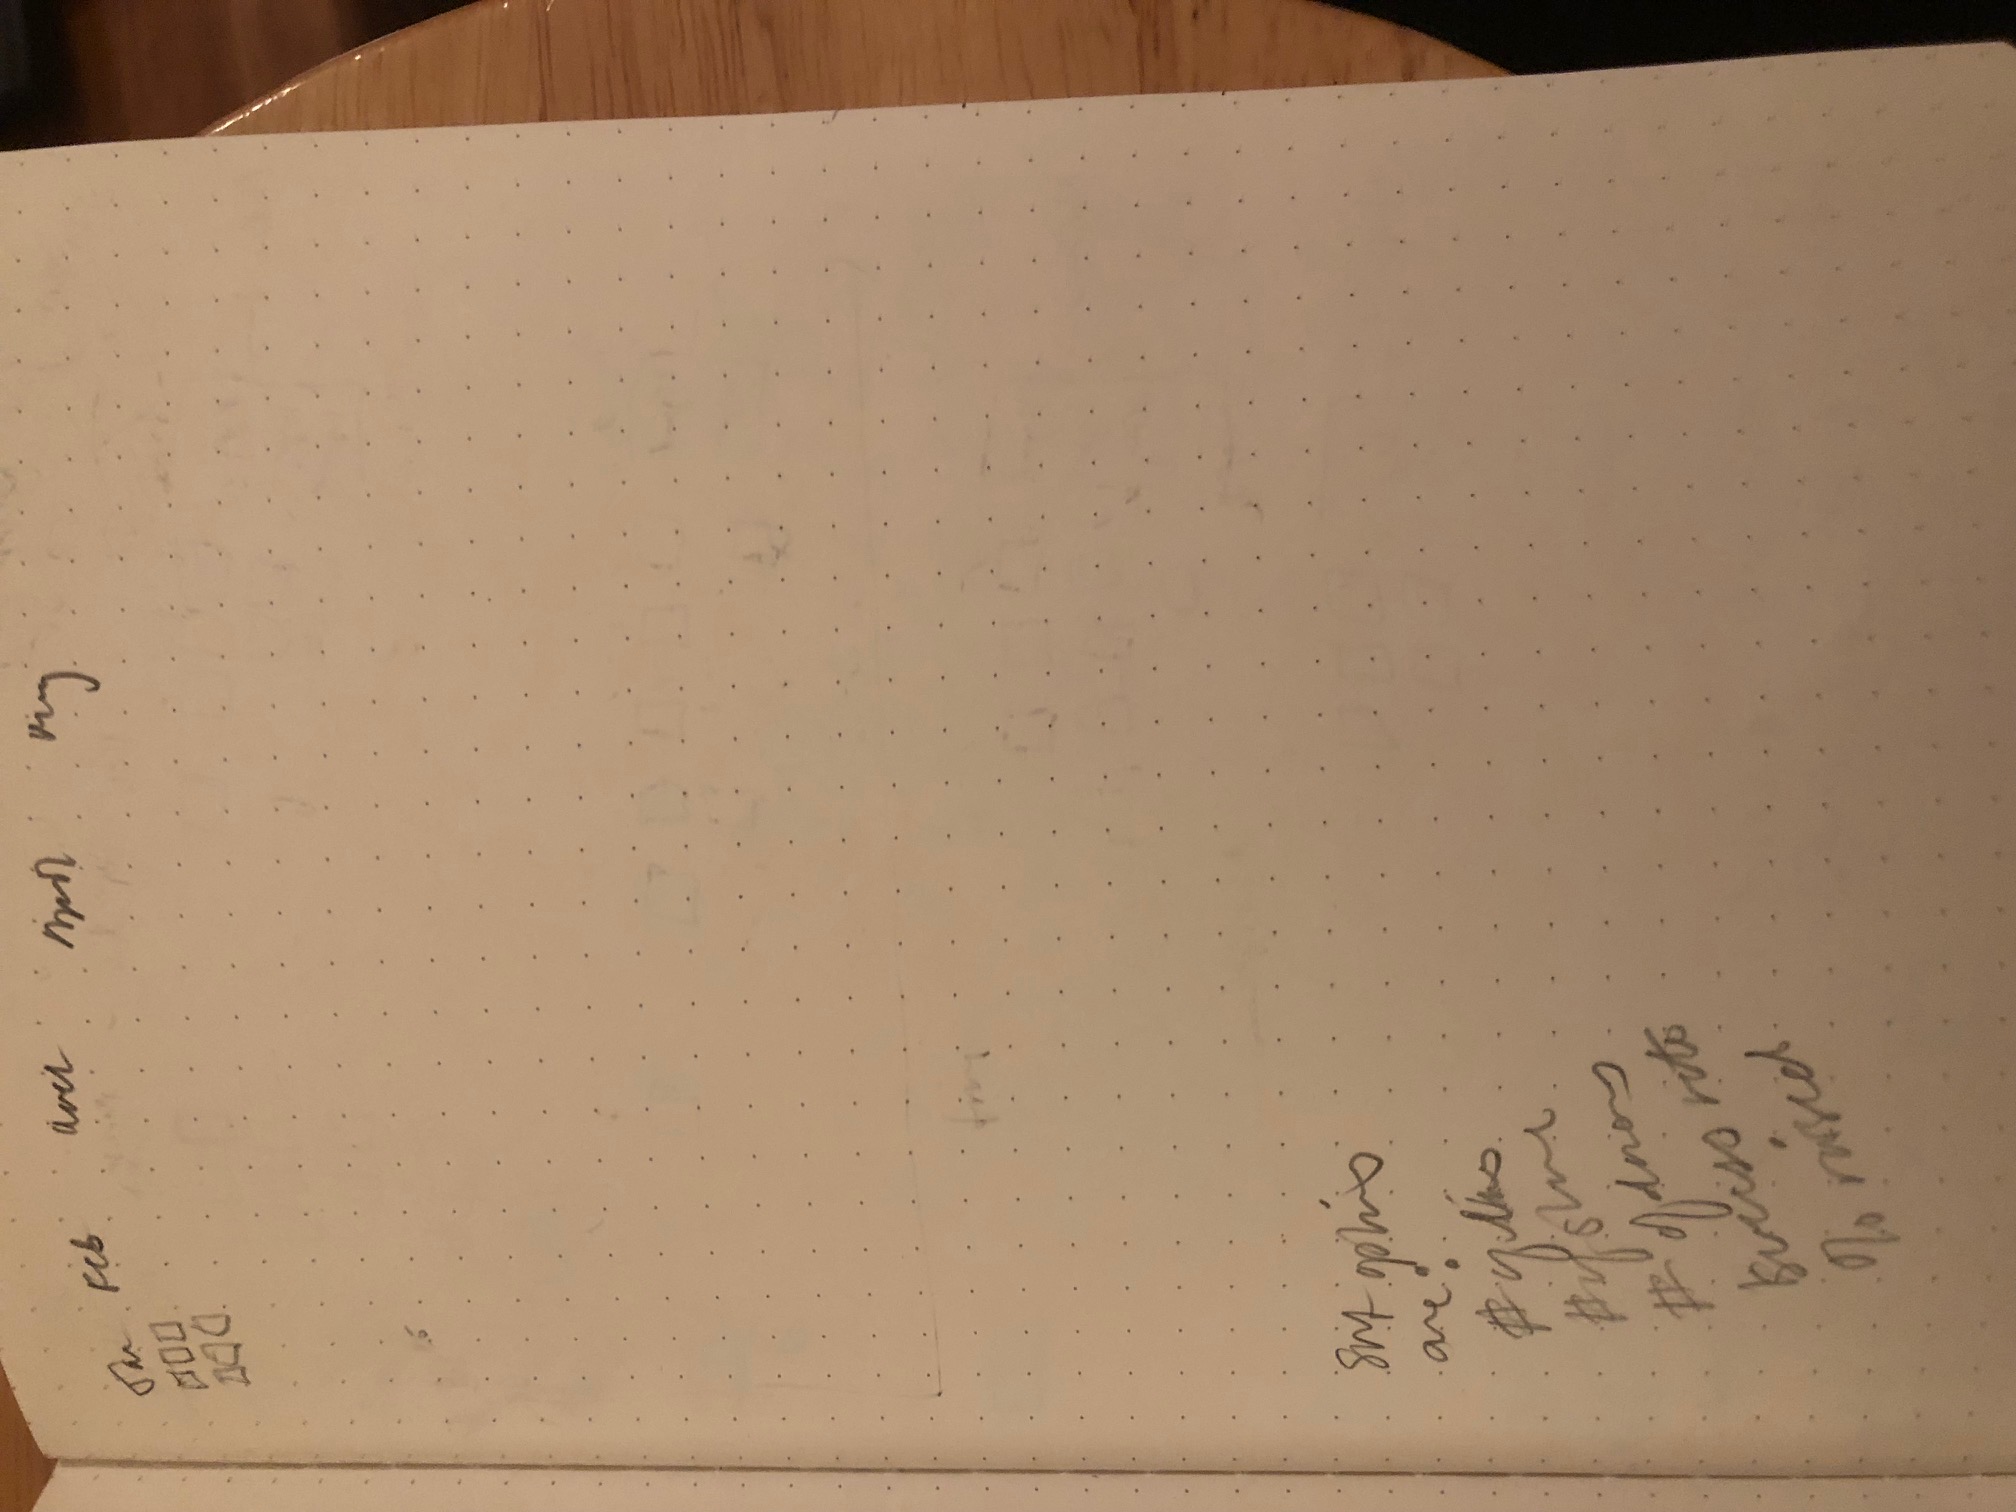 Jan Feb March April May
Sort options
are:
# of likes
# of
# of donors
Success rate
% raised